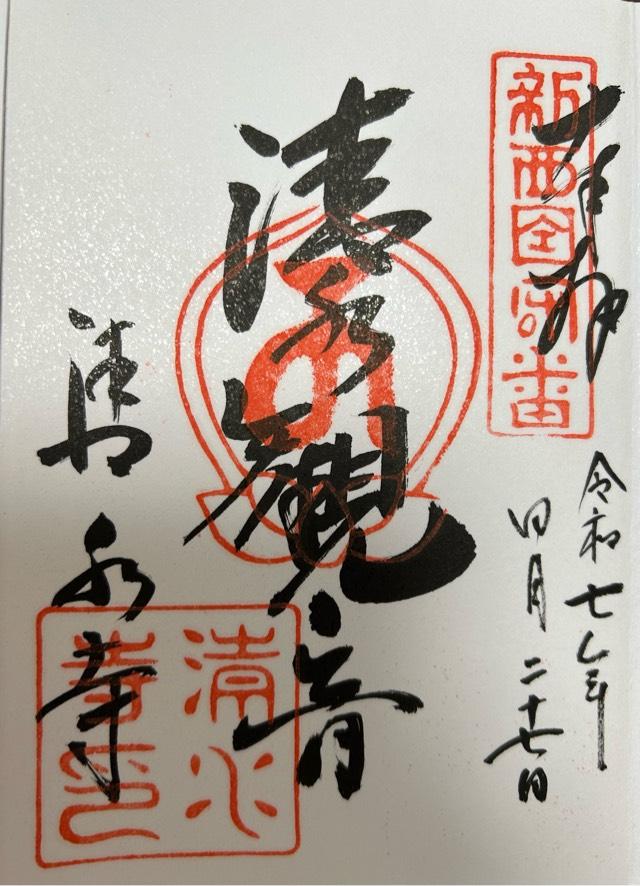 新西国客番
奉拝
令和七年
四月二十七日
清水観音
清水寺
清水寺印